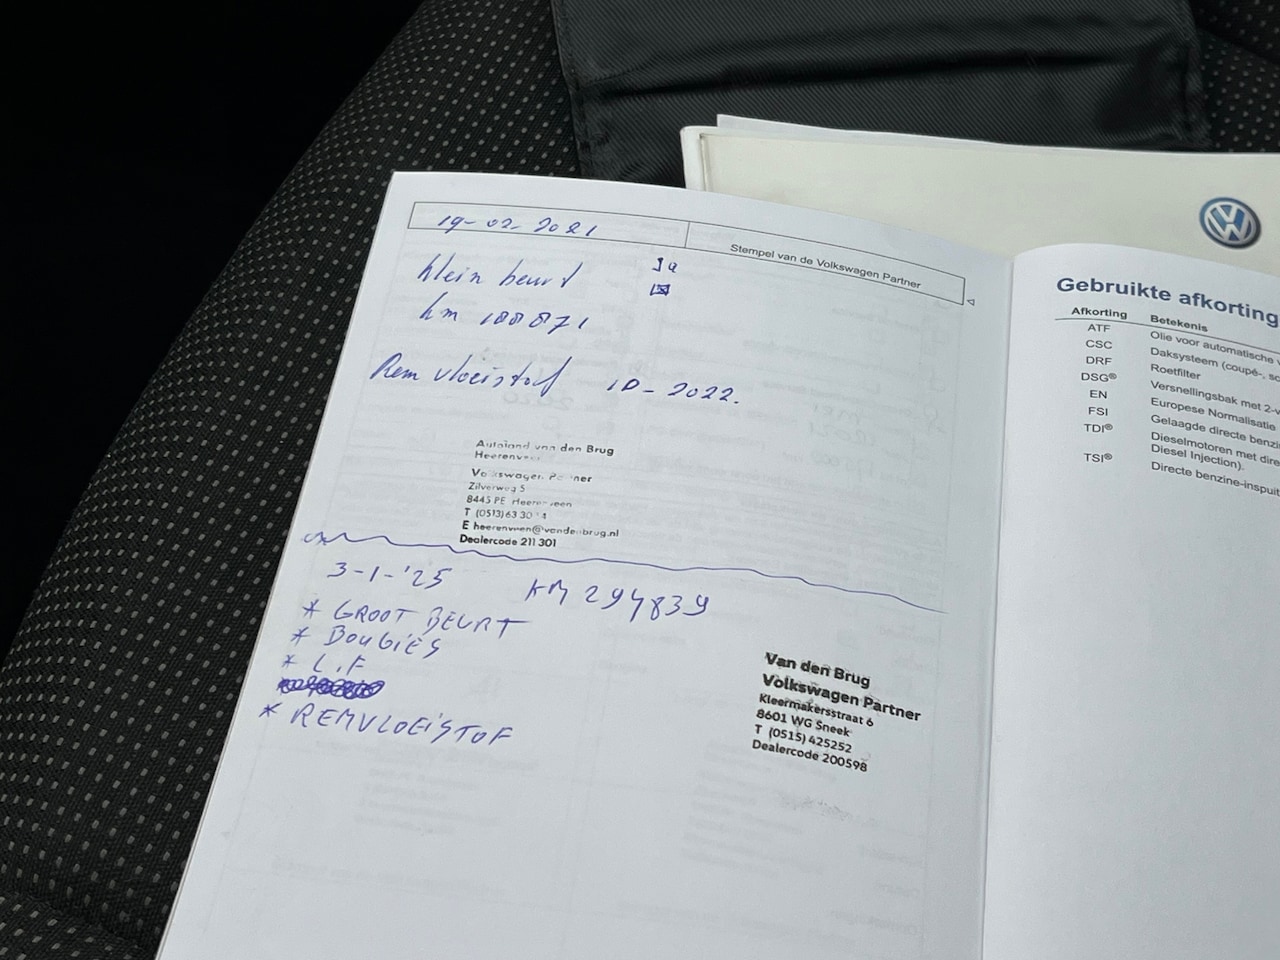 19-02-2021
Stempel van de Volkswagen Partner
klein beurt
Ja
km 188871
Rem vloeistof 10-2022.
Autoland van den Brug
Heerenveen
Volkswagen Partner
Zilverweg 5
8445 PE Heerenveen
T (0513) 63 30
E heerenveen@vandenbrug.nl
Dealercode 211 301
3-1-'25 KM 294839
* GROOT BEURT
* BOUGIES
* L.F
* REMVLOEISTOF
Van den Brug
Volkswagen Partner
Kleermakersstraat 6
8601 WG Sneek
T (0515) 425252
Dealercode 200598
Gebruikte afkorting
Afkorting Betekenis
ATF Olie voor automatische
CSC Daksysteem (coupé-,
DRF Roetfilter
DSG® Versnellingsbak met
EN Europese Normalisatie
FSI Gelaagde directe
TDI® Dieselmotoren met
Diesel Injection).
TSI® Directe